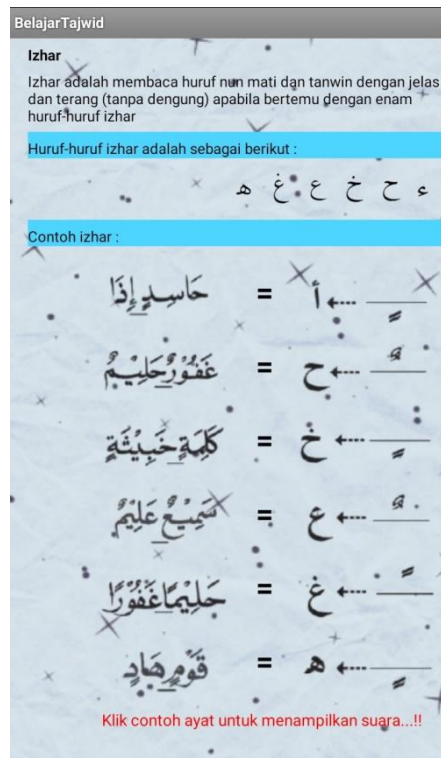 BelajarTajwid
Izhar
Izhar adalah membaca huruf nun mati dan tanwin dengan jelas
dan terang (tanpa dengung) apabila bertemu dengan enam
huruf-huruf izhar
Huruf-huruf izhar adalah sebagai berikut :
ء ح خ ع غ ه
Contoh izhar :
ـٍ أ = حَاسِدٍ إِذَا
ـٌ ح = غَفُوْرٌ حَلِيْمٌ
ـٍ خ = كَلِمَةٍ خَبِيْثَةٍ
ـٌ ع = سَمِيْعٌ عَلِيْمٌ
ـً غ = حَلِيْمًا غَفُوْرًا
ـٍ ه = قَوْمٍ هَادٍ
Klik contoh ayat untuk menampilkan suara...!!